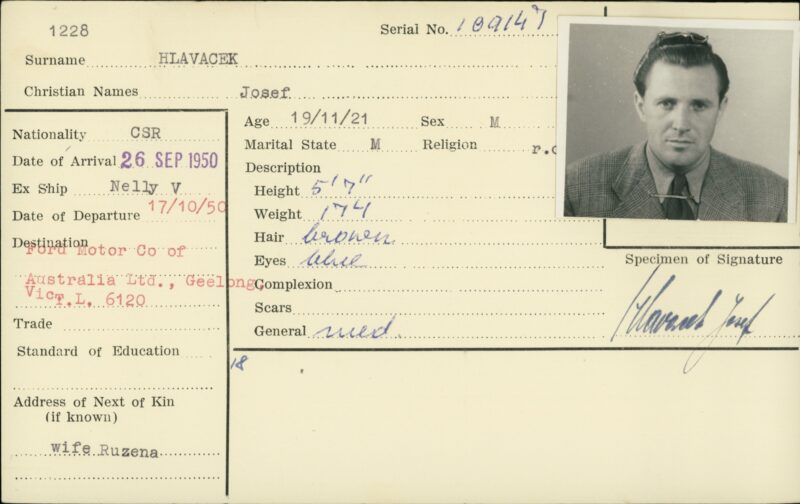 1228
Serial No. 109147
Surname HLAVACEK
Christian Names Josef
Nationality CSR
Date of Arrival 26 SEP 1950
Ex Ship Nelly V
Date of Departure 17/10/50
Destination
Ford Motor Co of
Australia Ltd., Geelong,
Vic.
T.L. 6120
Trade
Standard of Education
Address of Next of Kin
(if known)
wife Ruzena
Age 19/11/21 Sex M
Marital State M Religion r.c
Description
Height 5'7"
Weight 174
Hair brown
Eyes blue
Complexion
Scars
General med.
18
Specimen of Signature
Hlavacek Josef